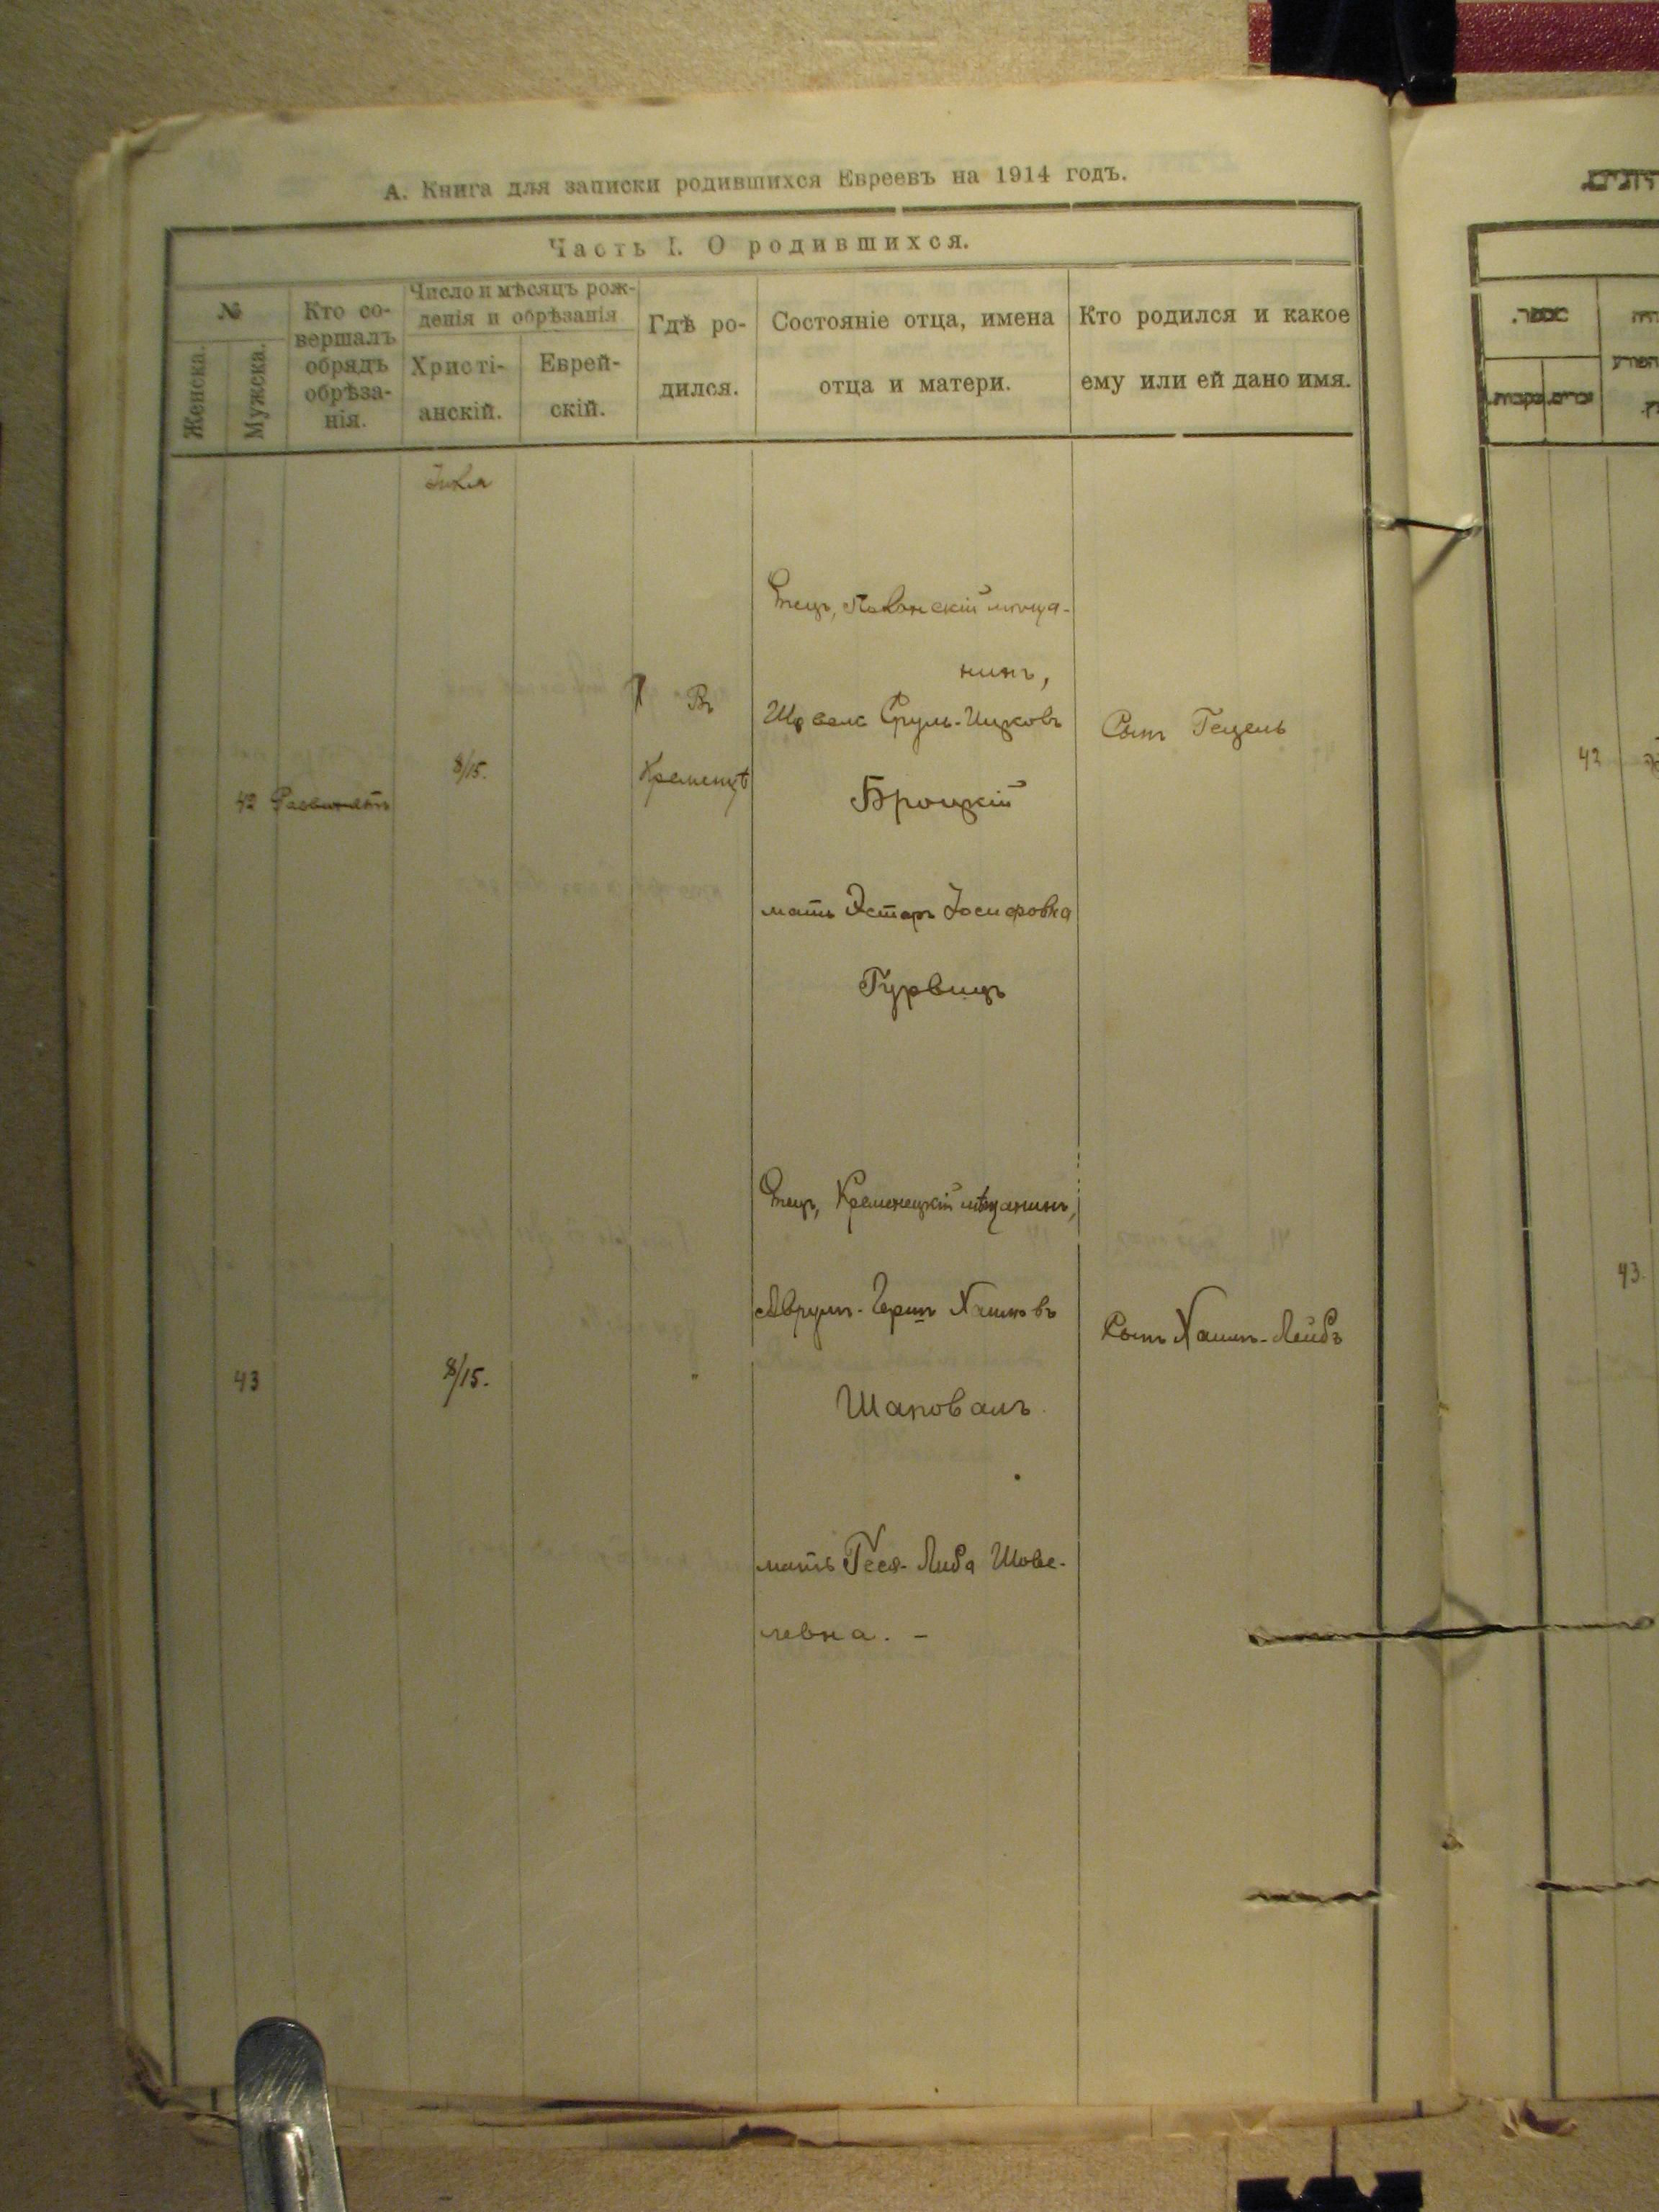 А. Книга для записки родившихся Евреевъ на 1914 годъ.
Часть I. О родившихся.
№
Женска.
Мужска.
Кто со-
вершалъ
обрядъ
обрѣза-
нія.
Число и мѣсяцъ рож-
денія и обрѣзанія
Христі-
анскій.
Еврей-
скій.
Гдѣ ро-
дился.
Состояніе отца, имена
отца и матери.
Кто родился и какое
ему или ей дано имя.
42
8/15.
Въ
Кременцѣ
Отецъ,
нинъ,
Сруль-Ицковъ
Броцкій
мать Эстеръ Іосифовна
Гурвицъ
Сынъ Гецель
43
8/15.
"
Отецъ, Кременецкій мѣщанинъ,
Аврумъ-Гершъ Хаимовъ
Шаповалъ.
мать Геся-Либа Шове-
левна. -
Сынъ Хаимъ-Лейбъ
42
43.